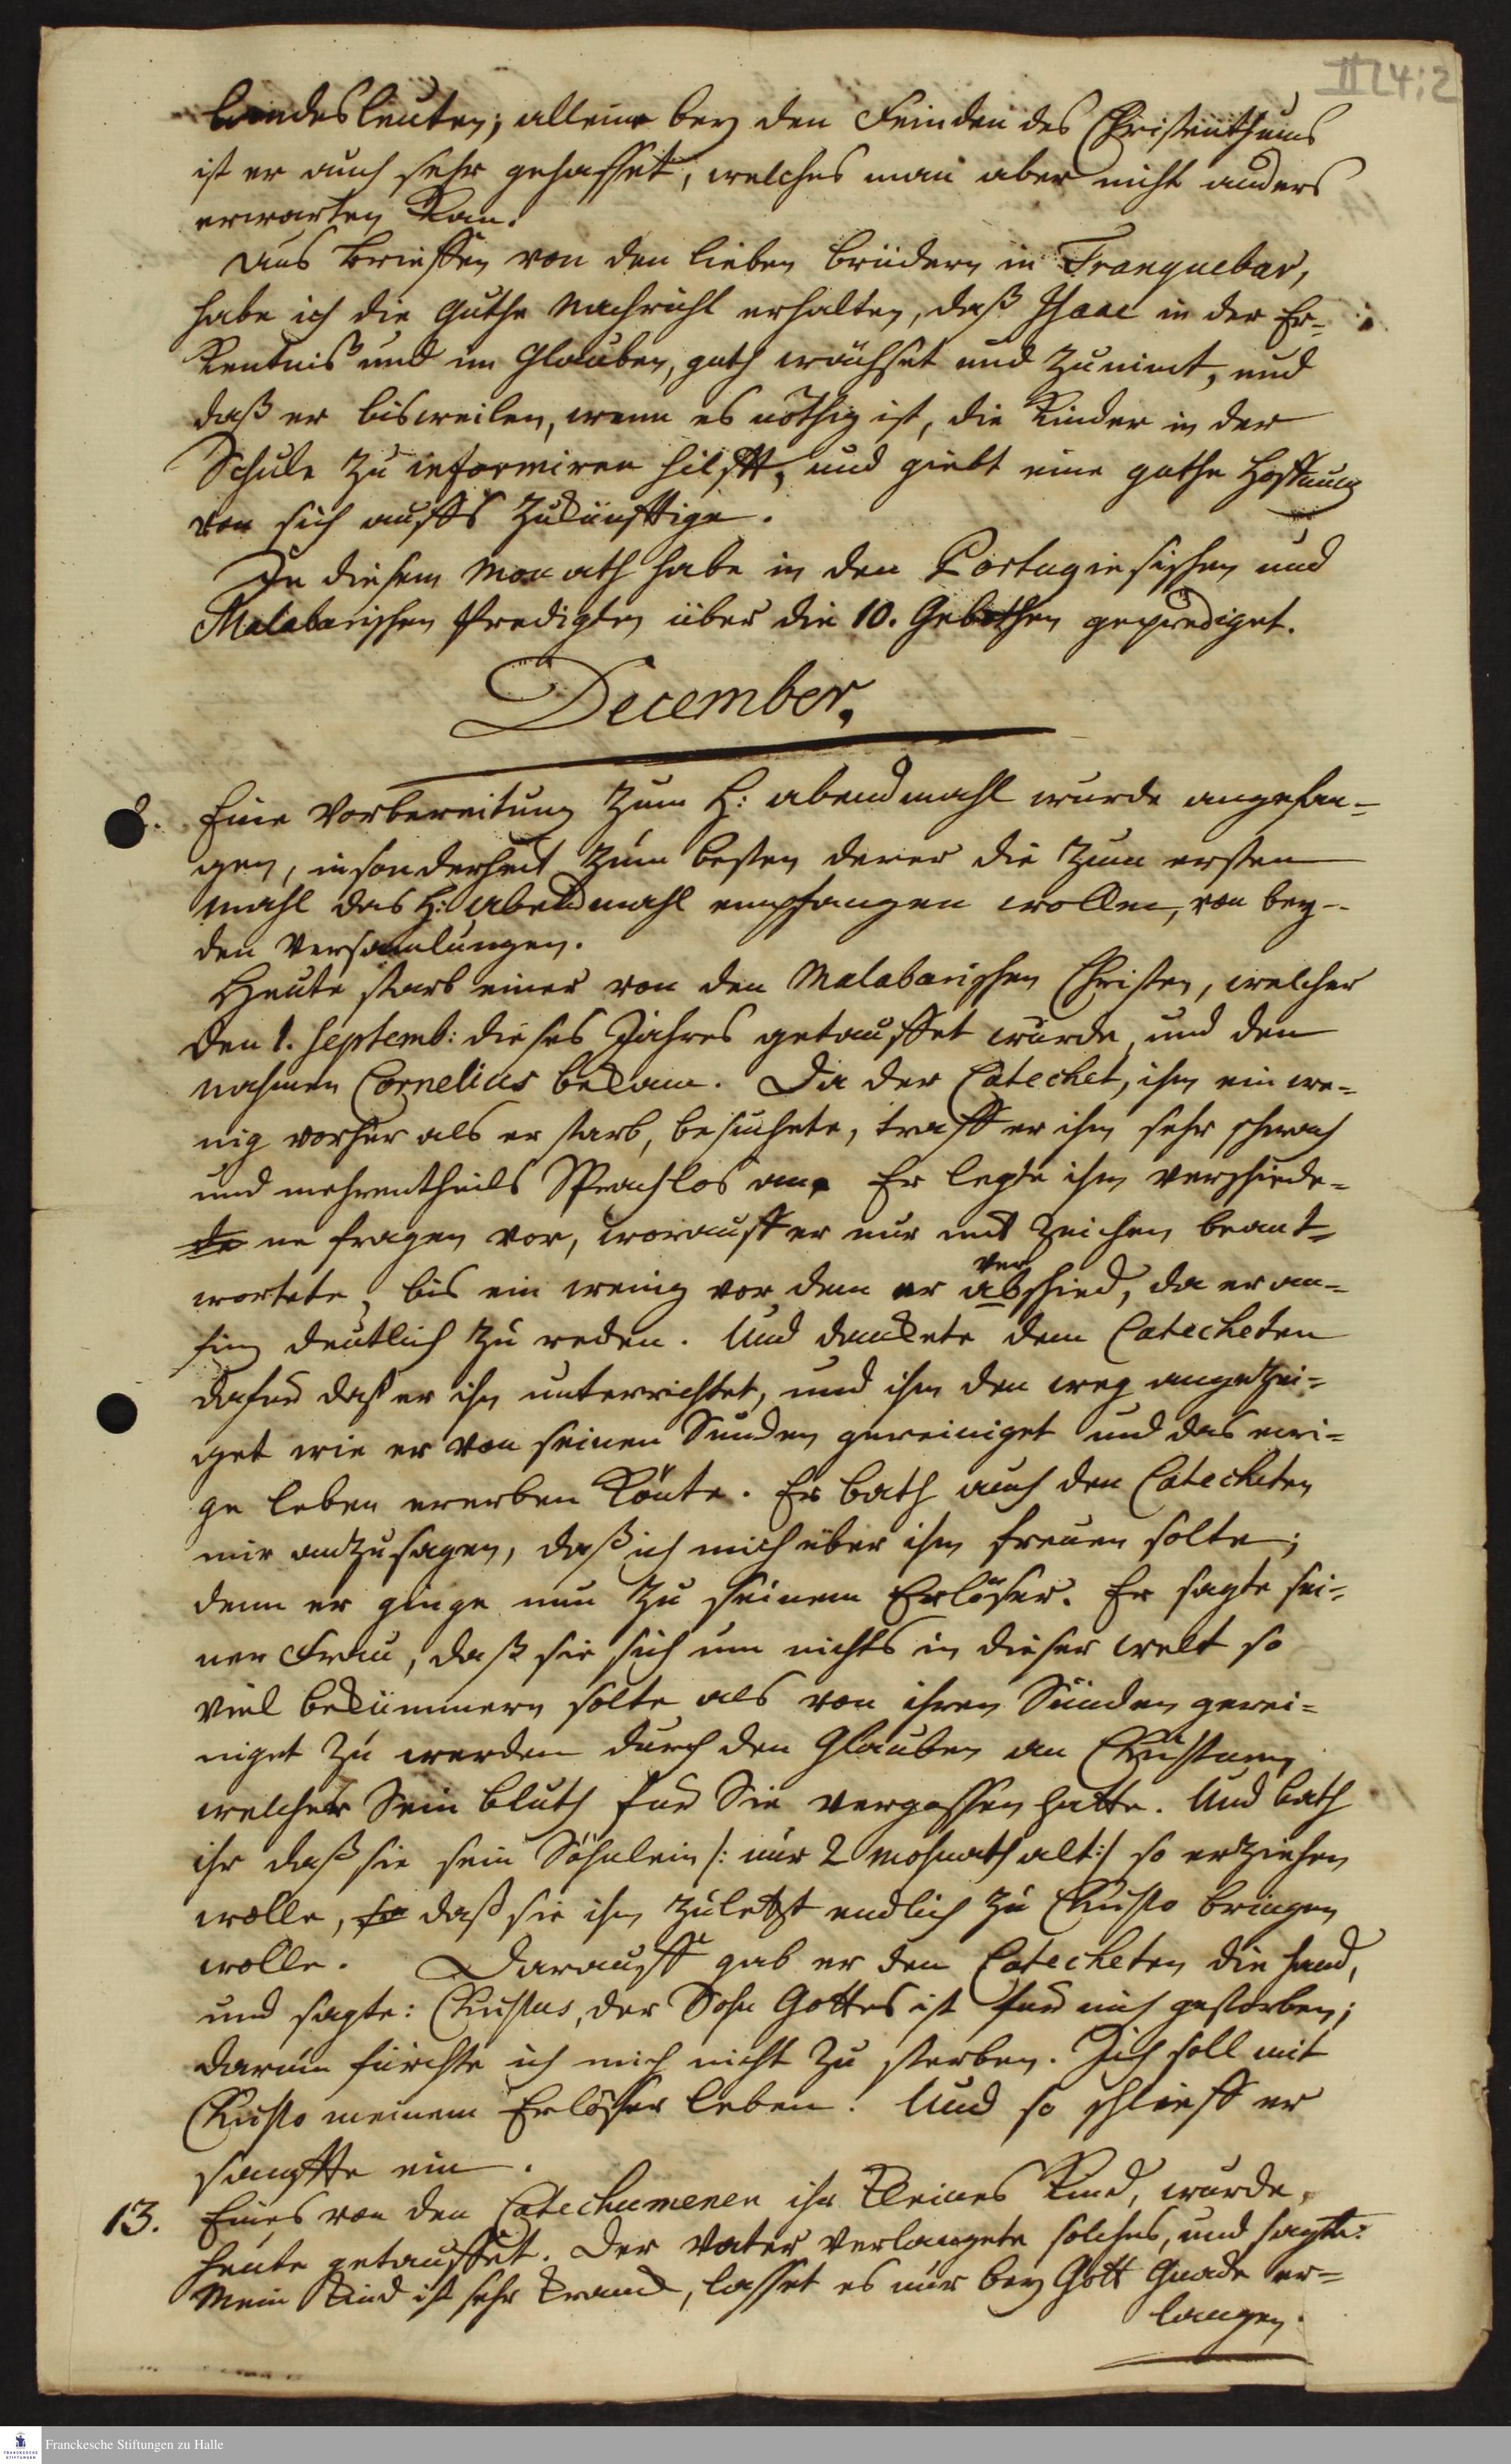 II 24:2
Landesleuten; alleine bey den Feinden des Christenthums
ist er auch sehr gehasset, welches man aber nicht anders
erwarten kan.
Aus Brieffen von den lieben Brüdern in Tranquebar,
habe ich die guthe Nachricht erhalten, daß Isaac in der Er-
kentniß und im Glauben, guth wächset und zunimt, und
daß er bisweilen, wenn es nöthig ist, die Kinder in der
Schule zu informiren hilfft, und giebt eine guthe Hoffnung
von sich auffs zukünfftige.
In diesem Monath habe in den Portugiesischen und
Malabarischen Predigten über die 10. Gebothen geprediget.
December.
2. Eine Vorbereitung zum H: Abendmahl wurde angefan-
gen, insonderheit zum besten derer die zum ersten
mahl das H: Abendmahl empfangen wollen, von bey-
den Versamlungen.
Heute starb einer von den Malabarischen Christen, welcher
den 1. Septemb: dieses Jahres getauffet wurde, und den
nahmen Cornelius bekam. Da der Catechet, ihn ein we-
nig vorher als er starb, besuchete, traff er ihn sehr schwach
und mehrentheils Sprachlos an. Er legte ihm verschiede-
de ne fragen vor, worauff er nur mit Zeichen beant-
wortete, bis ein wenig vor dem er abschied, da er an-
ver
fing deutlich zu reden. Und danckete dem Catecheten
dafur daß er ihn unterrichtet, und ihm den weg angezei-
get wie er von seinen Sunden gereiniget und das ewi-
ge leben ererben könte. Er bath auch den Catecheten
mir anzusagen, daß ich mich über ihn freuen solte;
denn er ginge nun zu seinem Erlöser. Er sagte sei-
ner Frau, daß sie sich um nichts in dieser welt so
viel bekümmern solte als von ihren Sünden gerei-
niget zu werden durch den Glauben an Christum,
welcher Sein bluth fur Sie vergossen hatte. Und bath
ihr daß sie sein Söhnlein /: nur 2 mohnath alt:/ so erziehen
wolle, so daß sie ihn zuletzt endlich zu Christo bringen
wolle. Darauff gab er den Catecheten die hand,
und sagte: Christus, der Sohn Gottes ist fur mich gestorben;
darum fürchte ich mich nicht zu sterben. Ich soll mit
Christo meinem Erlösser leben. Und so schlieff er
sanffte ein.
13. Eines von den Catechumenen ihr kleines Kind, wurde
heute getauffet. Der Vater verlangete solches, und sagte:
Mein Kind ist sehr kranck, lasset es nur bey Gott Gnade er-
langen.
Franckesche Stiftungen zu Halle